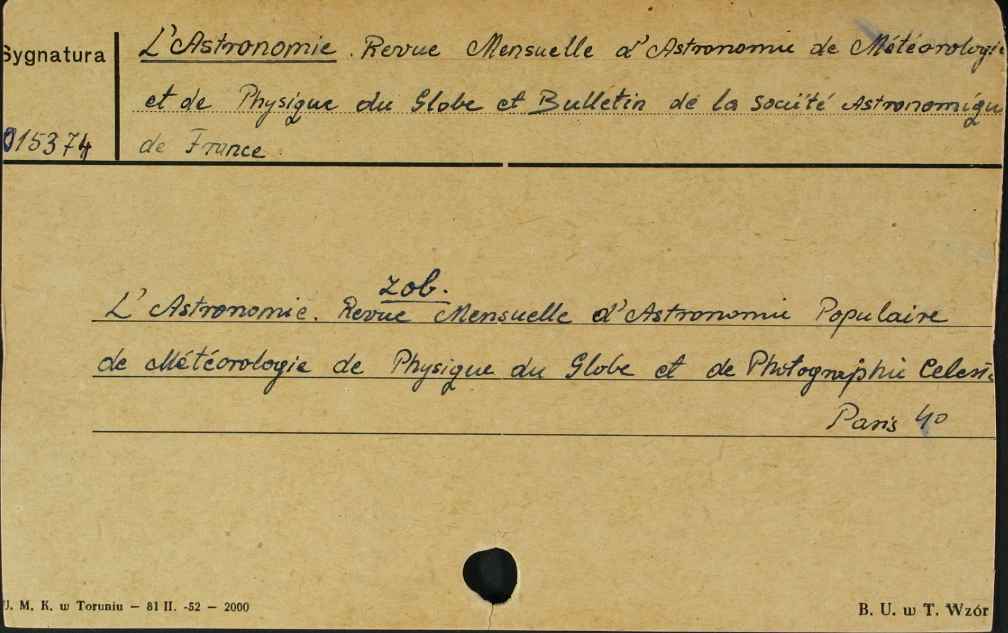 Sygnatura
L'Astronomie. Revue Mensuelle d'Astronomie de Météorologie
et de Physique du Globe et Bulletin de la Société Astronomiqu
015374
de France
zob.
L'Astronomie. Revue Mensuelle d'Astronomie Populaire
de Météorologie de Physique du Globe et de Photographie Celest
Paris 4o
U. M. K. w Toruniu — 81 II. -52 — 2000
B. U. w T. Wzór